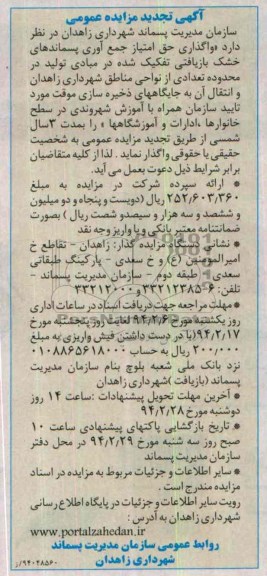 آگهی تجدید مزایده عمومی
سازمان مدیریت پسماند شهرداری زاهدان در نظر
دارد «واگذاری حق امتیاز جمع آوری پسماندهای
خشک بازیافتی تفکیک شده در مبادی تولید در
محدوده تعدادی از نواحی مناطق شهرداری زاهدان
و انتقال آن به جایگاههای ذخیره سازی موقت مورد
تایید سازمان همراه با آموزش شهروندی در سطح
خانوارها ،ادارات و آموزشگاهها » را بمدت ۳سال
شمسی از طریق تجدید مزایده عمومی به شخصیت
حقیقی یا حقوقی واگذار نماید . لذا از کلیه متقاضیان
برابر شرایط ذیل دعوت بعمل می آید.
• ارائه سپرده شرکت در مزایده به مبلغ
۲۵۲٫۶۰۳٫۳۶۰ ریال (دویست و پنجاه و دو میلیون
و ششصد و سه هزار و سیصدو شصت ریال ) بصورت
ضمانتنامه معتبر بانکی و یا واریز وجه نقد
• نشانی دستگاه مزایده گذار: زاهدان - تقاطع خ
امیرالمومنین (ع) و خ سعدی - پارکینگ طبقاتی
سعدی - طبقه دوم - سازمان مدیریت پسماند -
تلفن: ۶-۳۳۲۱۲۳۸۵ و ۳۳۲۱۲۰۰۰
• مهلت مراجعه جهت دریافت اسناد در ساعات اداری
روز یکشنبه مورخ ۹۴/۲/۶ لغایت روز پنجشنبه مورخ
۹۴/۲/۱۷(با در دست داشتن فیش واریزی به مبلغ
۲۰۰٫۰۰۰ ریال به حساب ۰۱۰۸۸۶۵۶۱۸۰۰۰
نزد بانک ملی شعبه بلوچ بنام سازمان مدیریت
پسماند (بازیافت )شهرداری زاهدان
• آخرین مهلت تحویل پیشنهادات :ساعت ۱۴ روز
دوشنبه مورخ ۹۴/۲/۲۸
• تاریخ بازگشایی پاکتهای پیشنهادی ساعت ۱۰
صبح روز سه شنبه مورخ ۹۴/۲/۲۹ در محل دفتر
سازمان مدیریت پسماند
• سایر اطلاعات و جزئیات مربوط به مزایده در اسناد
مزایده مندرج است .
رویت سایر اطلاعات و جزئیات در پایگاه اطلاع رسانی
شهرداری زاهدان به آدرس :
www.portalzahedan.ir
روابط عمومی سازمان مدیریت پسماند
شهرداری زاهدان
۹۴۰۲۸۵۶۰/ر